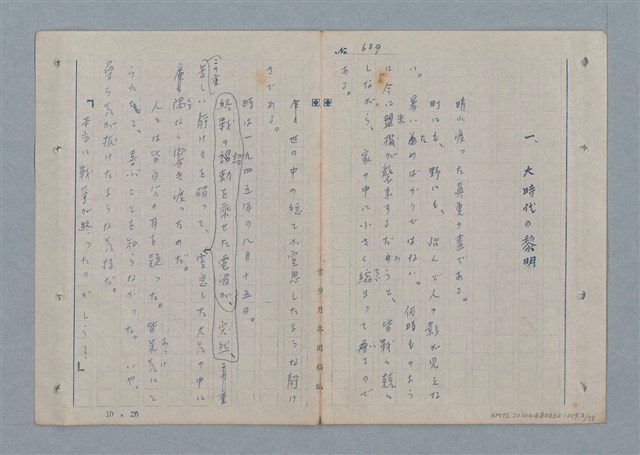 No. 689
一、大時代の黎明
晴れ渡った真夏の晝である。
町にも、野にも、殆んど人の影が見えな
い。暑い為めばかりではない。何時ものよう
に今に盟機が来襲するだろうと、皆戦々兢々
しながら、家の中に小さく縮まって居るので
ある。
全世の中の総てが窒息したような静け
さである。
時は一九四五年の八月十五日。
終戦の詔勅を乗せた電波が、突然、二重
三重
苦しい静けさを破って、窒息した大気の中に
隅なく響き渡ったのだ。
人々は皆自分の耳を疑った。皆呆気にと
られて、喜ぶことも知らなかった。いや、
寧ろ気が抜けたような気持だ。
「本当に戦争が終ったのかしら？」
10×20